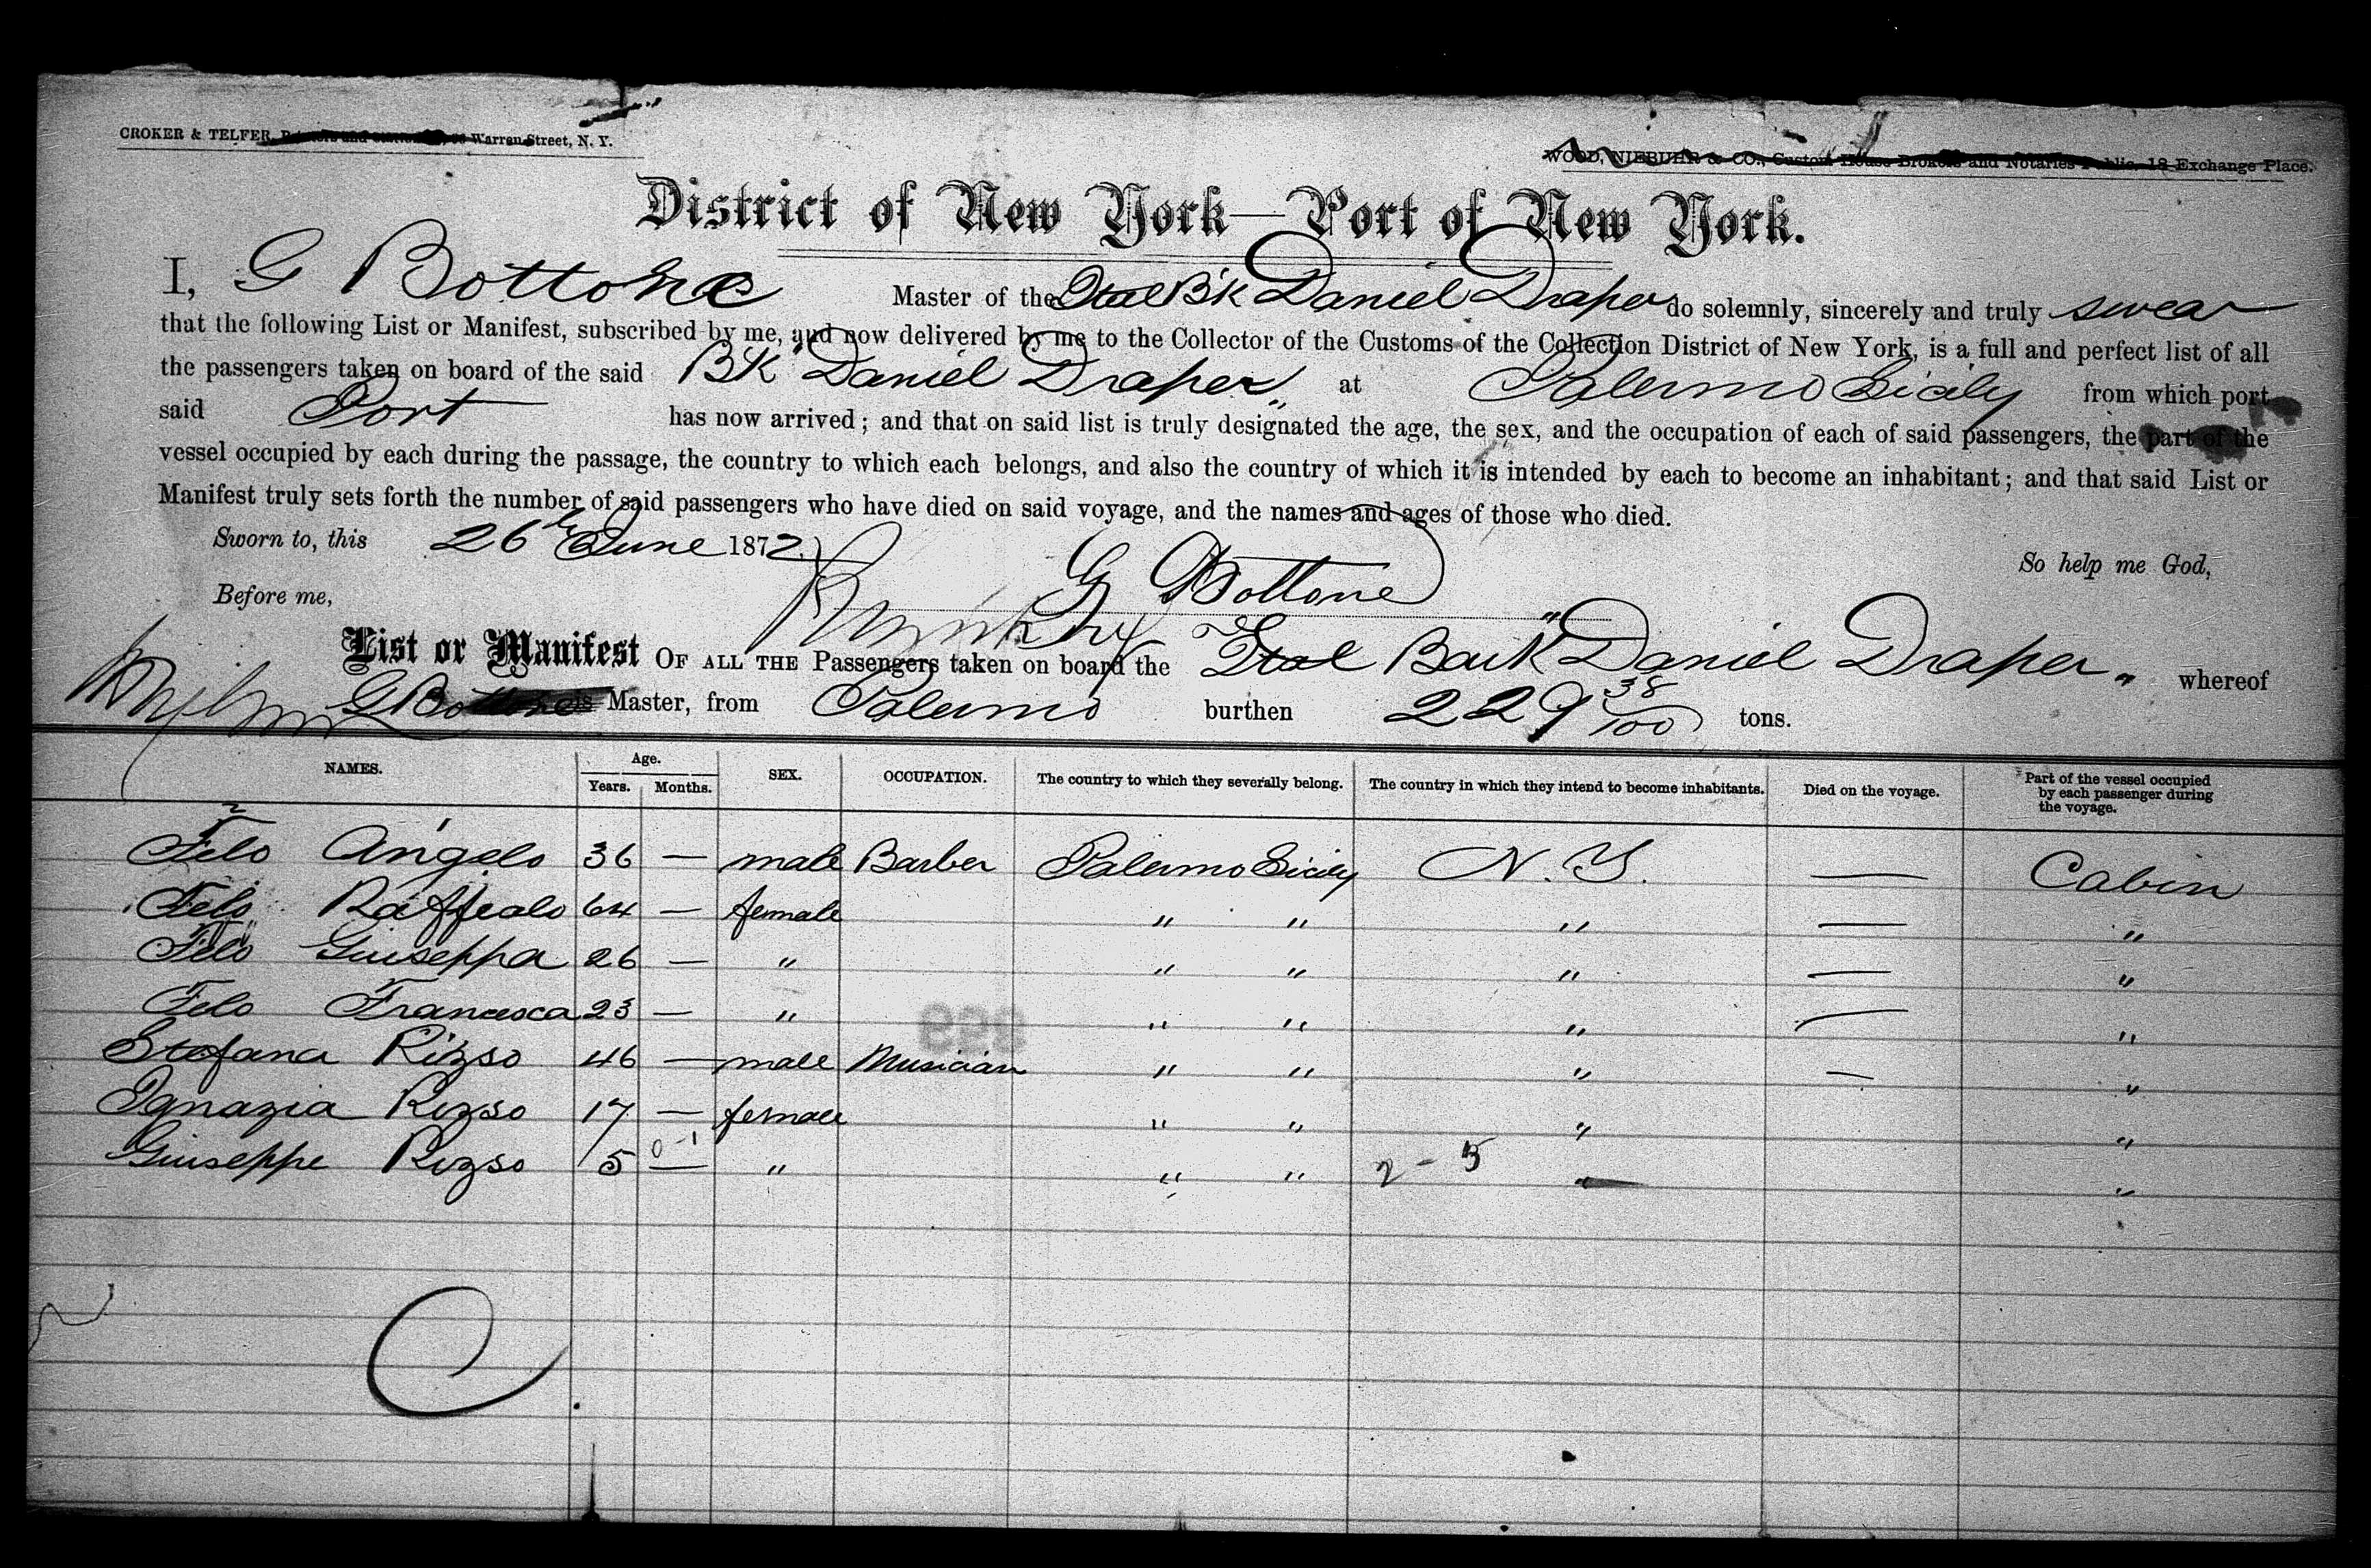 CROKER & TELFER, Printers and Stationers, Warren Street, N. Y.
WOOD, NIEBUHR & CO., Custom House Brokers and Notaries Public, 18 Exchange Place.
District of New York—Port of New York.
I, G Bottone Master of the Ital Bk Daniel Draper do solemnly, sincerely and truly swear
that the following List or Manifest, subscribed by me, and now delivered by me to the Collector of the Customs of the Collection District of New York, is a full and perfect list of all
the passengers taken on board of the said BK "Daniel Draper" at Palermo Sicily from which port
said Port has now arrived; and that on said list is truly designated the age, the sex, and the occupation of each of said passengers, the part of the
vessel occupied by each during the passage, the country to which each belongs, and also the country of which it is intended by each to become an inhabitant; and that said List or
Manifest truly sets forth the number of said passengers who have died on said voyage, and the names and ages of those who died.
Sworn to, this 26th June 1872. So help me God,
Before me, G Bottone
List or Manifest OF ALL THE Passengers taken on board the Ital Bark "Daniel Draper" whereof
G Bottone is Master, from Palermo burthen 229 38/100 tons.
NAMES. Age. Years. Months. SEX. OCCUPATION. The country to which they severally belong. The country in which they intend to become inhabitants. Died on the voyage. Part of the vessel occupied by each passenger during the voyage.
Felo Angelo 36 — male Barber Palermo Sicily N. Y. — Cabin
Felo Raffealo 64 — female " " " — "
Felo Giuseppa 26 — " " " " — "
Felo Francesca 23 — " " " " — "
Stefana Rizso 46 — male Musician " " " — "
Ignazia Rizso 17 — female " " " "
Giuseppe Rizso 5 — " " " 2 - 5 " "